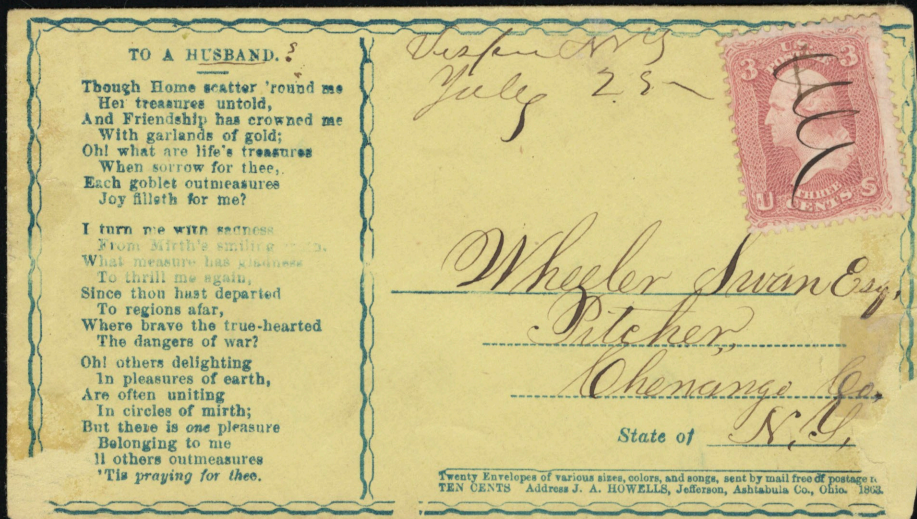 TO A HUSBAND.
Though Home scatter 'round me
Her treasures untold,
And Friendship has crowned me
With garlands of gold;
Oh! what are life's treasures
When sorrow for thee,
Each goblet outmeasures
Joy filleth for me?
I turn me with sadness
From Mirth's smiling
What measure has gladness
To thrill me again,
Since thou hast departed
To regions afar,
Where brave the true-hearted
The dangers of war?
Oh! others delighting
In pleasures of earth,
Are often uniting
In circles of mirth;
But there is one pleasure
Belonging to me
ll others outmeasures
'Tis praying for thee.
N Y
July 25
U.S.
3 3
U S
THREE
CENTS
Wheeler Swan Esq,
Pitcher,
Chenango Co.
State of N.Y.
Twenty Envelopes of various sizes, colors, and songs, sent by mail free of postage
TEN CENTS Address J. A. HOWELLS, Jefferson, Ashtabula Co., Ohio. 1863.